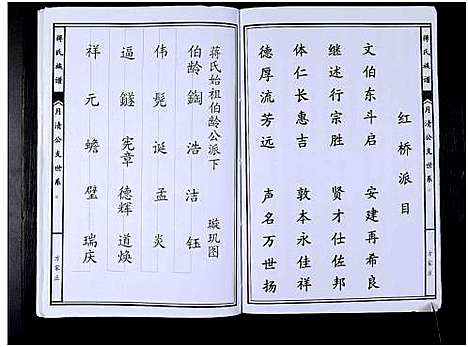 蒋氏族谱
月清公支世系
红桥派目
文伯东斗启 安建再希良
继述行宗胜 贤才仕佐邦
体仁长惠吉 敦本永佳祥
德厚流芳远 声名万世扬
蒋氏始祖伯龄公派下 璇玑图
伯龄 鋾 浩 洁 钰
伟 髡 诞 孟 炎
逼 鐩 宪章 德辉 道焕
祥 元 蟾 璧 瑞庆
蒋氏族谱
月清公支世系